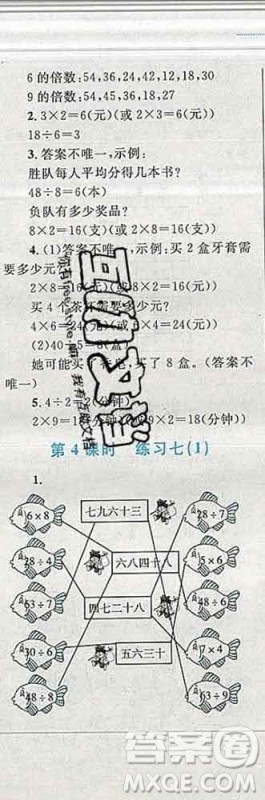 6 的倍数:54,36,24,42,12,18,30
9 的倍数:54,45,36,18,27
2. 3×2=6(元)(或 2×3=6(元))
18÷6=3
3. 答案不唯一,示例:
胜队每人平均分得几本书?
48÷8=6(本)
负队有多少奖品?
8×2=16(支)(或 2×8=16(支))
4. (1)答案不唯一,示例:买 2 盒牙膏需
要多少元?
2×8=16(元)(或 8×2=16(元))
买 4 个茶杯需要多少元?
4×6=24(元)
她可能买了 买了 8 盒。(答案不
唯一)
5. 4÷2=2(分钟)
2×9=18(分钟) 9×2=18(分钟))
第 4 课时 练习七(1)
1.
七九六十三
6×8
28÷7
六八四十八
28÷4
5×6
四七二十八
63÷7
48÷6
五六三十
30÷6
7×4
48÷8
63÷9
互动文档
我有广级文档
答案圈
MXQE.COM